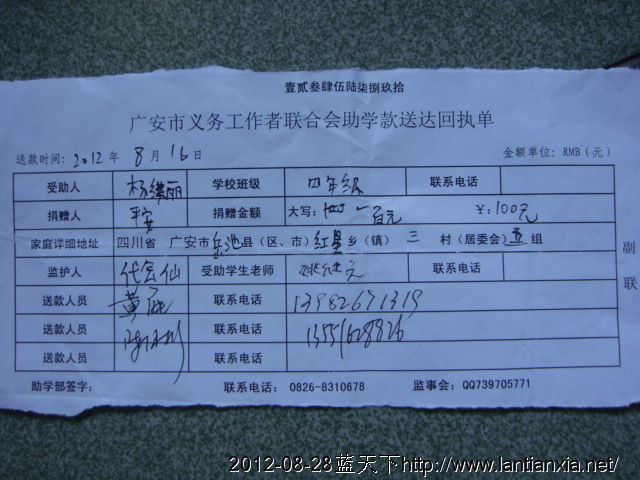 壹贰叁肆伍陆柒捌玖拾
广安市义务工作者联合会助学款送达回执单
送款时间：2012年 8月16日 金额单位：RMB（元）
受助人 杨 丽 学校班级 四年级 联系电话
捐赠人 平安 捐赠金额 大写： 一百元 ￥：100元
家庭详细地址 四川省 广安市岳池县（区、市）红星乡（镇） 三 村（居委会）五组
监护人 代会仙 受助学生老师 联系电话
送款人员 黄 联系电话 13982671319
送款人员 联系电话 13551628826
送款人员 联系电话
助学部签字： 联系电话：0826-8310678 监事会：QQ739705771
副联
2012-08-28蓝天下http://www.lantianxia.net/